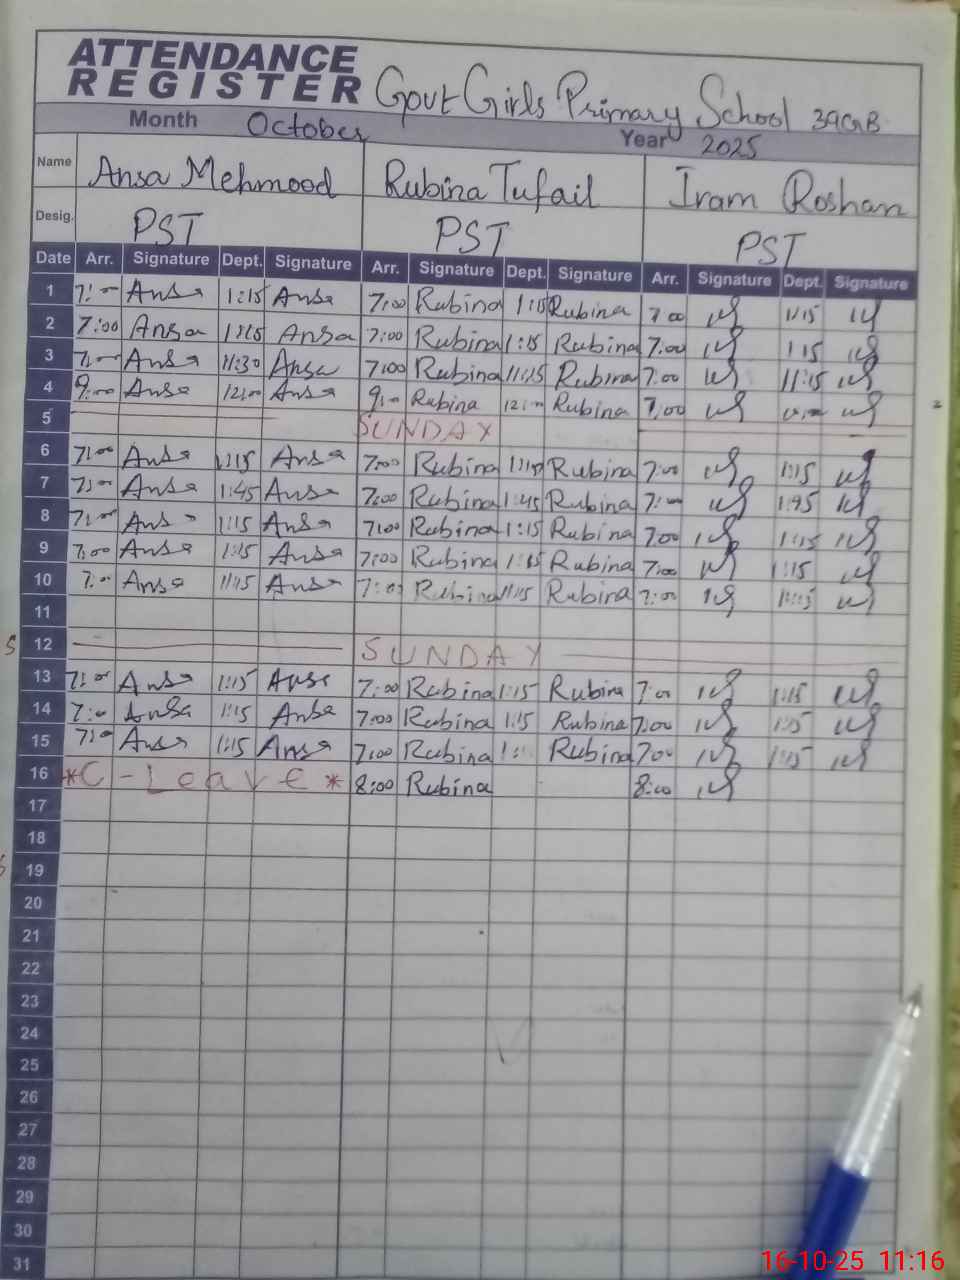 ATTENDANCE
REGISTER Govt Girls Primary School 39GB
Month October Year 2025
Name Ansa Mehmood Rubina Tufail Iram Roshan
Desig. PST PST PST
Date Arr. Signature Dept. Signature Arr. Signature Dept. Signature Arr. Signature Dept. Signature
1 7:00 Ansa 1:15 Ansa 7:00 Rubina 1:15 Rubina 7:00 1:15
2 7:00 Ansa 1:15 Ansa 7:00 Rubina 1:15 Rubina 7:00 1:15
3 7:00 Ansa 11:30 Ansa 7:00 Rubina 11:15 Rubina 7:00 11:15
4 9:00 Ansa 12:00 Ansa 9:00 Rubina 12:00 Rubina 7:00
5 SUNDAY
6 7:00 Ansa 1:15 Ansa 7:00 Rubina Rubina 7:00 1:15
7 7:00 Ansa 1:45 Ansa 7:00 Rubina 1:45 Rubina 7:00 1:45
8 7:00 Ansa 1:15 Ansa 7:00 Rubina 1:15 Rubina 7:00 1:15
9 7:00 Ansa 1:15 Ansa 7:00 Rubina 1:15 Rubina 7:00 1:15
10 7:00 Ansa 11:15 Ansa 7:00 Rubina 11:15 Rubina 7:00 11:15
11
S 12 SUNDAY
13 7:00 Ansa 1:15 Ansa 7:00 Rubina 1:15 Rubina 7:00 1:15
14 7:00 Ansa 1:15 Ansa 7:00 Rubina 1:15 Rubina 7:00 1:15
15 7:00 Ansa 1:15 Ansa 7:00 Rubina Rubina 7:00 1:15
16 *C-Leave* 8:00 Rubina 8:00
17
18
19
20
21
22
23
24
25
26
27
28
29
30
31
16-10-25 11:16